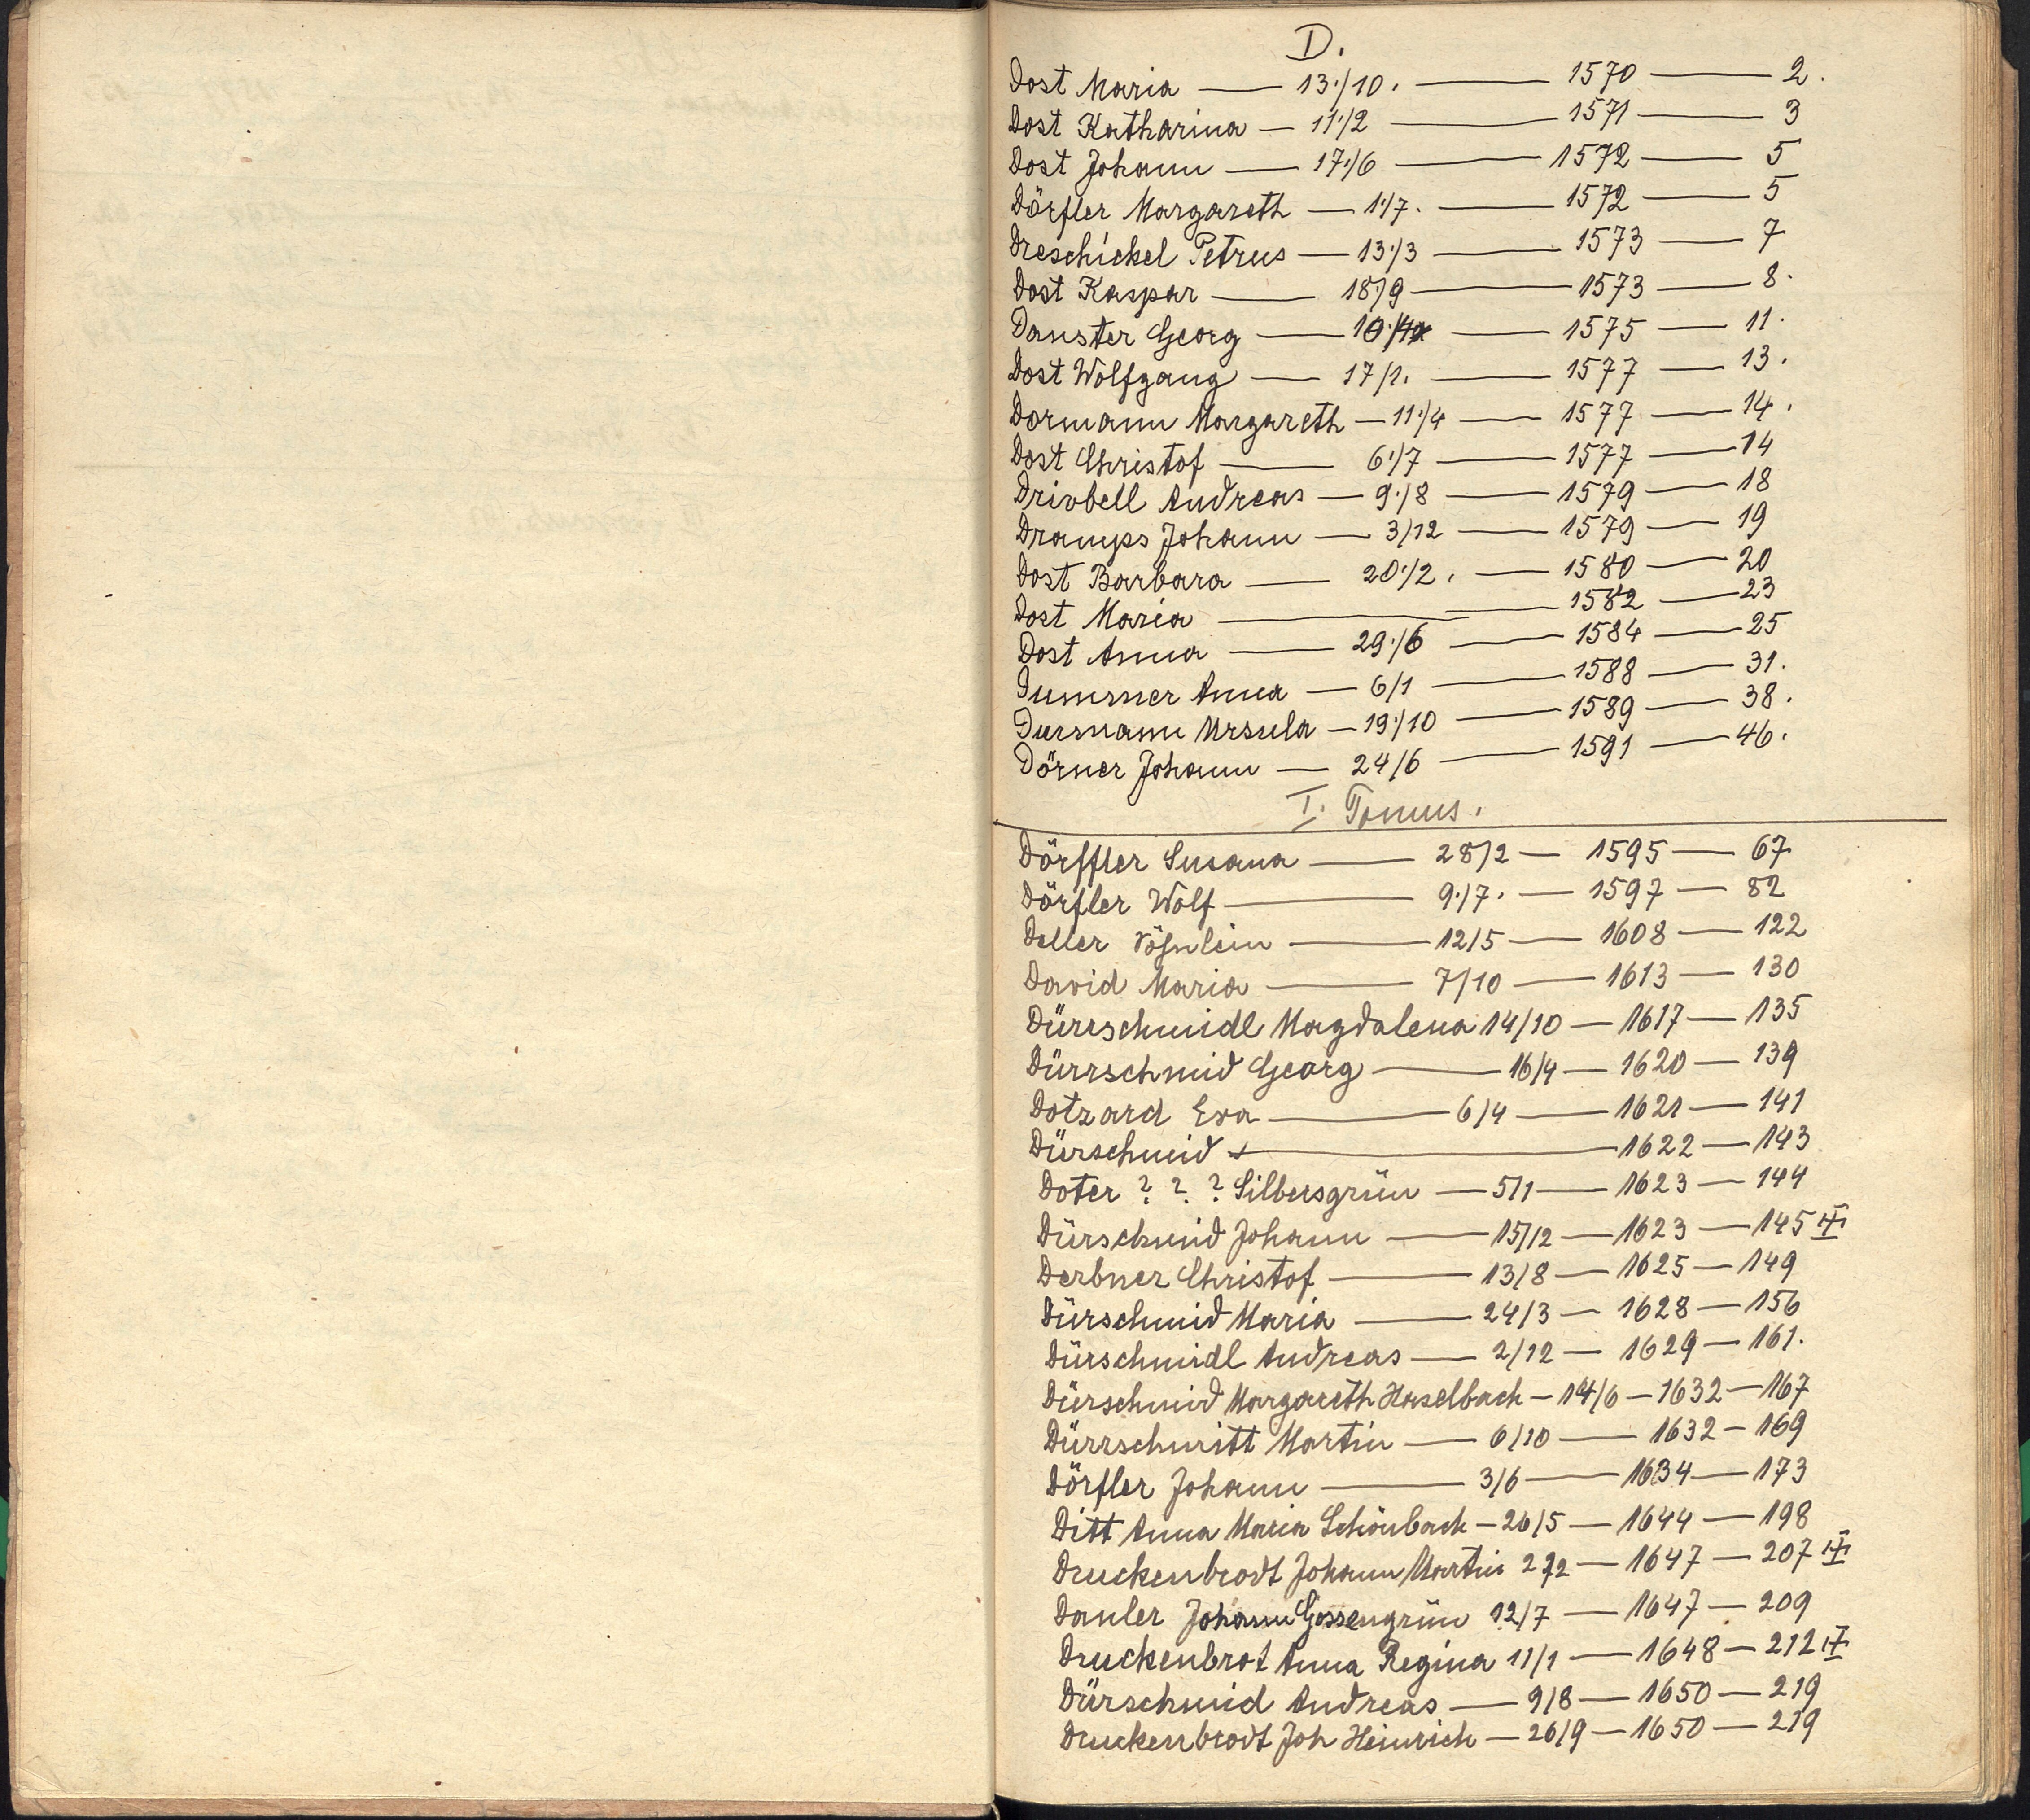 D.
Dost Maria — 13./10. — 1570 — 2.
Dost Katharina — 11./2 — 1571 — 3
Dost Johann — 17./6 — 1572 — 5
Dörfler Margareth — 1./7. — 1572 — 5
Dreschickel Petrus — 13./3 — 1573 — 7
Dost Kaspar — 18./9 — 1573 — 8.
Danster Georg — 1575 — 11.
Dost Wolfgang — 17/1. — 1577 — 13.
Dormann Margareth — 11./4 — 1577 — 14.
Dost Christof — 6./7 — 1577 — 14
Drivbell Andreas — 9./8 — 1579 — 18
Dramps Johann — 3/12 — 1579 — 19
Dost Barbara — 20./2. — 1580 — 20
Dost Maria — 1582 — 23
Dost Anna — 29./6 — 1584 — 25
Dummer Anna — 6/1 — 1588 — 31.
Durmann Ursula — 19./10 — 1589 — 38.
Dörner Johann — 24/6 — 1591 — 46.
I. Tomus.
Dörffler Susana — 28/2 — 1595 — 67
Dörfler Wolf — 9./7. — 1597 — 82
Deller Söhnlein — 12/5 — 1608 — 122
David Maria — 7/10 — 1613 — 130
Dürrschmidl Magdalena 14/10 — 1617 — 135
Dürrschmid Georg — 16/4 — 1620 — 139
Dotzard Eva — 6/4 — 1621 — 141
Dürschmid + — 1622 — 143
Doter ? ? ? Silbersgrün — 5/1 — 1623 — 144
Dürschmid Johann — 15/12 — 1623 — 145
Derbner Christof — 13/8 — 1625 — 149
Dürschmid Maria — 24/3 — 1628 — 156
Dürschmidl Andreas — 2/12 — 1629 — 161.
Dürschmid Margareth Haselbach — 14/6 — 1632 — 167
Dürrschmitt Martin — 6/10 — 1632 — 169
Dörfler Johann — 3/6 — 1634 — 173
Ditt Anna Maria Schönbach — 26/5 — 1644 — 198
Druckenbrodt Johann Martin — 1647 — 207
Danler Johann Gossengrün 12/7 — 1647 — 209
Druckenbrot Anna Regina 11/1 — 1648 — 212
Dürschmid Andreas — 9/8 — 1650 — 219
Druckenbrodt Joh Heinrich — 26/9 — 1650 — 219